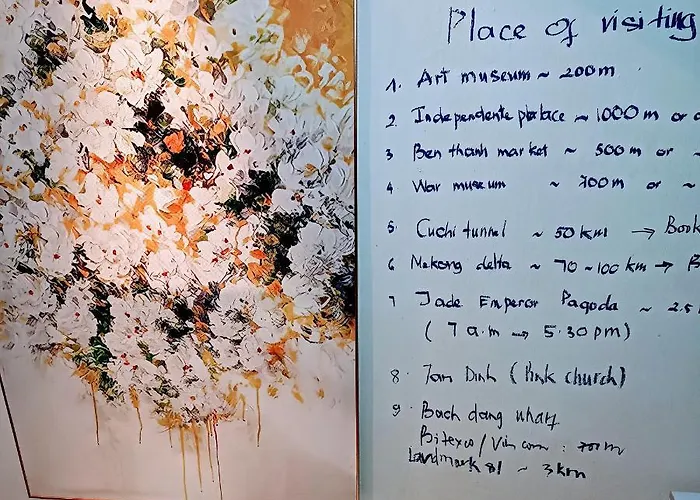 Place of visiting
1. Art museum ~ 200m
2. Independente palace ~ 1000 m or
3 Ben thanh market ~ 500 m or ~
4 War museum ~ 700m or ~
5 Cuchi tunnel ~ 50 km → Book
6 Mekong delta ~ 70 ~ 100 km → B
7 Jade Emperor Pagoda ~ 2.5
(7 a.m → 5.30 pm)
8. Tan Dinh (Pink church)
9. Bach dang wharf
Bitexco / Vin com : 700 m
Landmark 81 ~ 3km